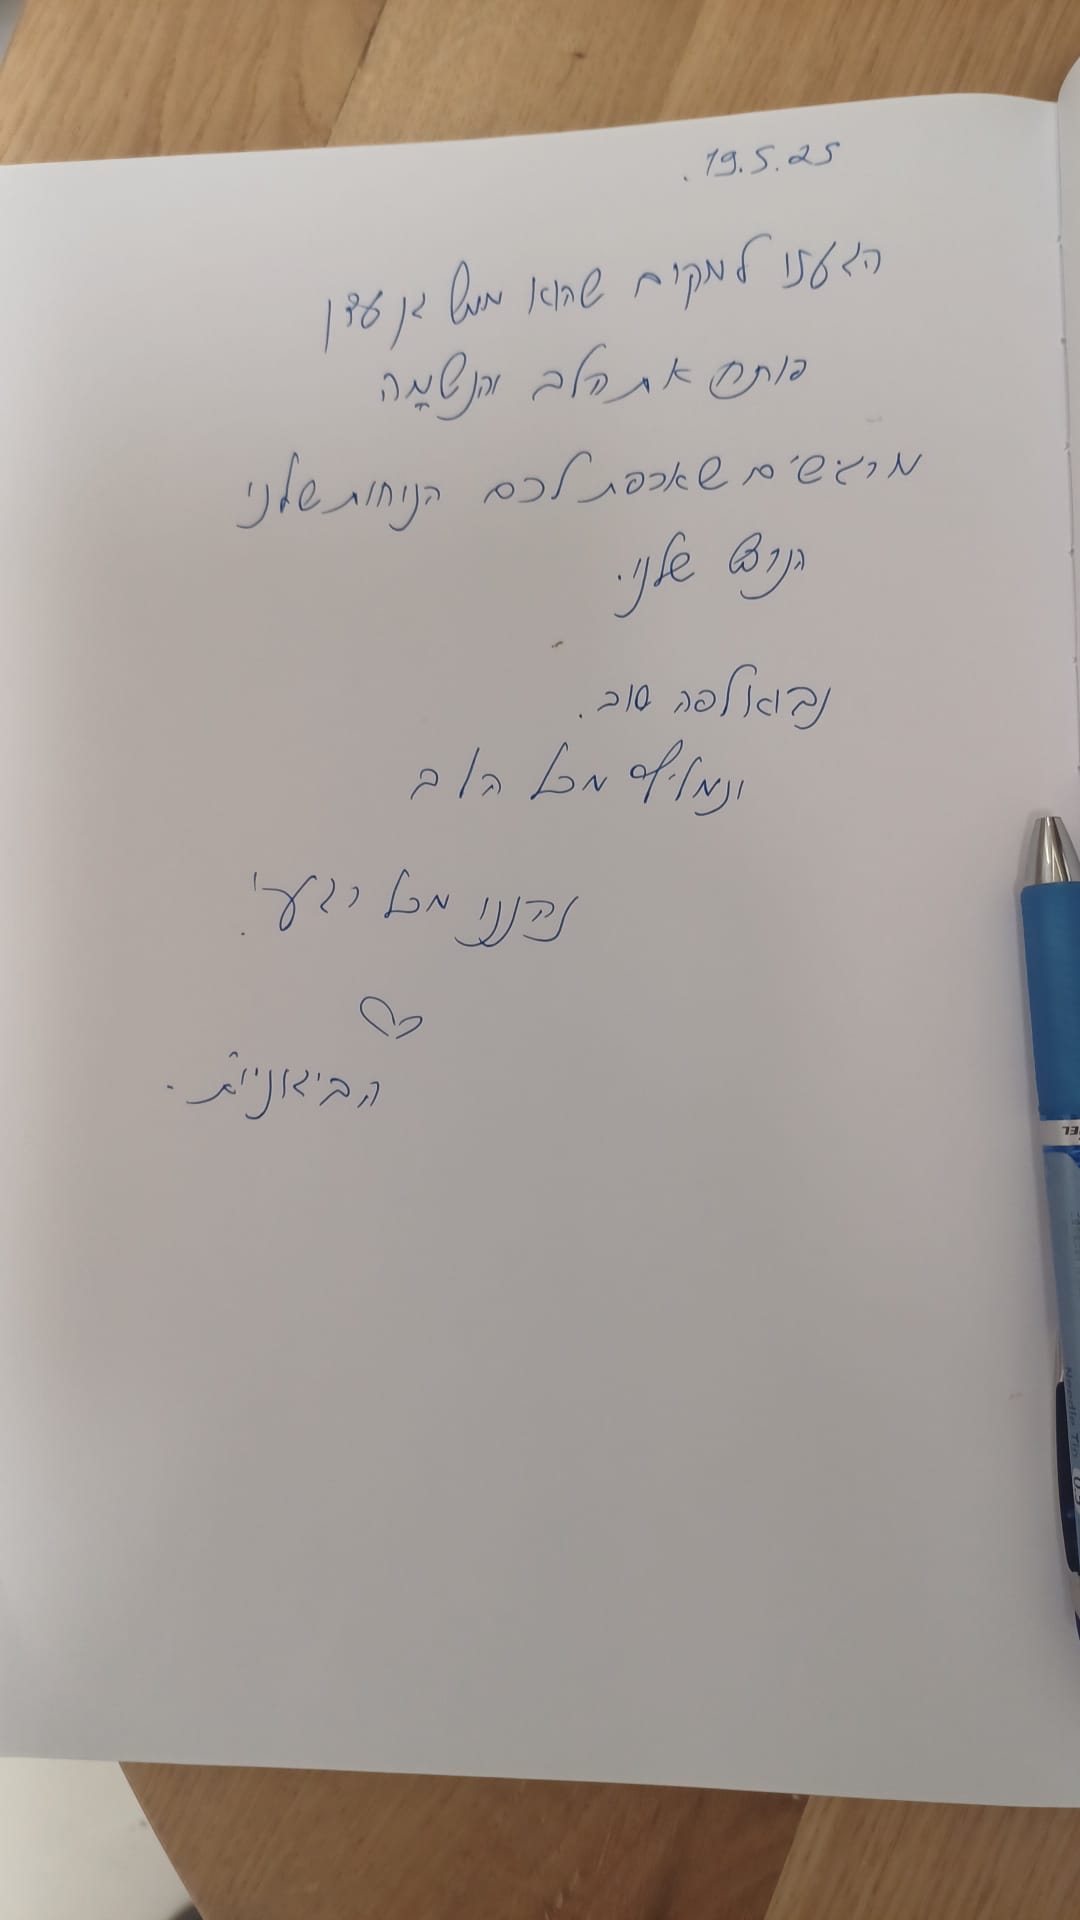 19.5.25.
הגענו למקום שהוא ממש גן עדן
פותח את הלב והנשמה
מרגישים שאכפת לכם הניחות שלנו
הנופש שלנו.
נבוא לפה שוב.
ונמליץ מכל הלב
נהננו מכל רגע!
הביגוניות.
Needle Tip 0.5